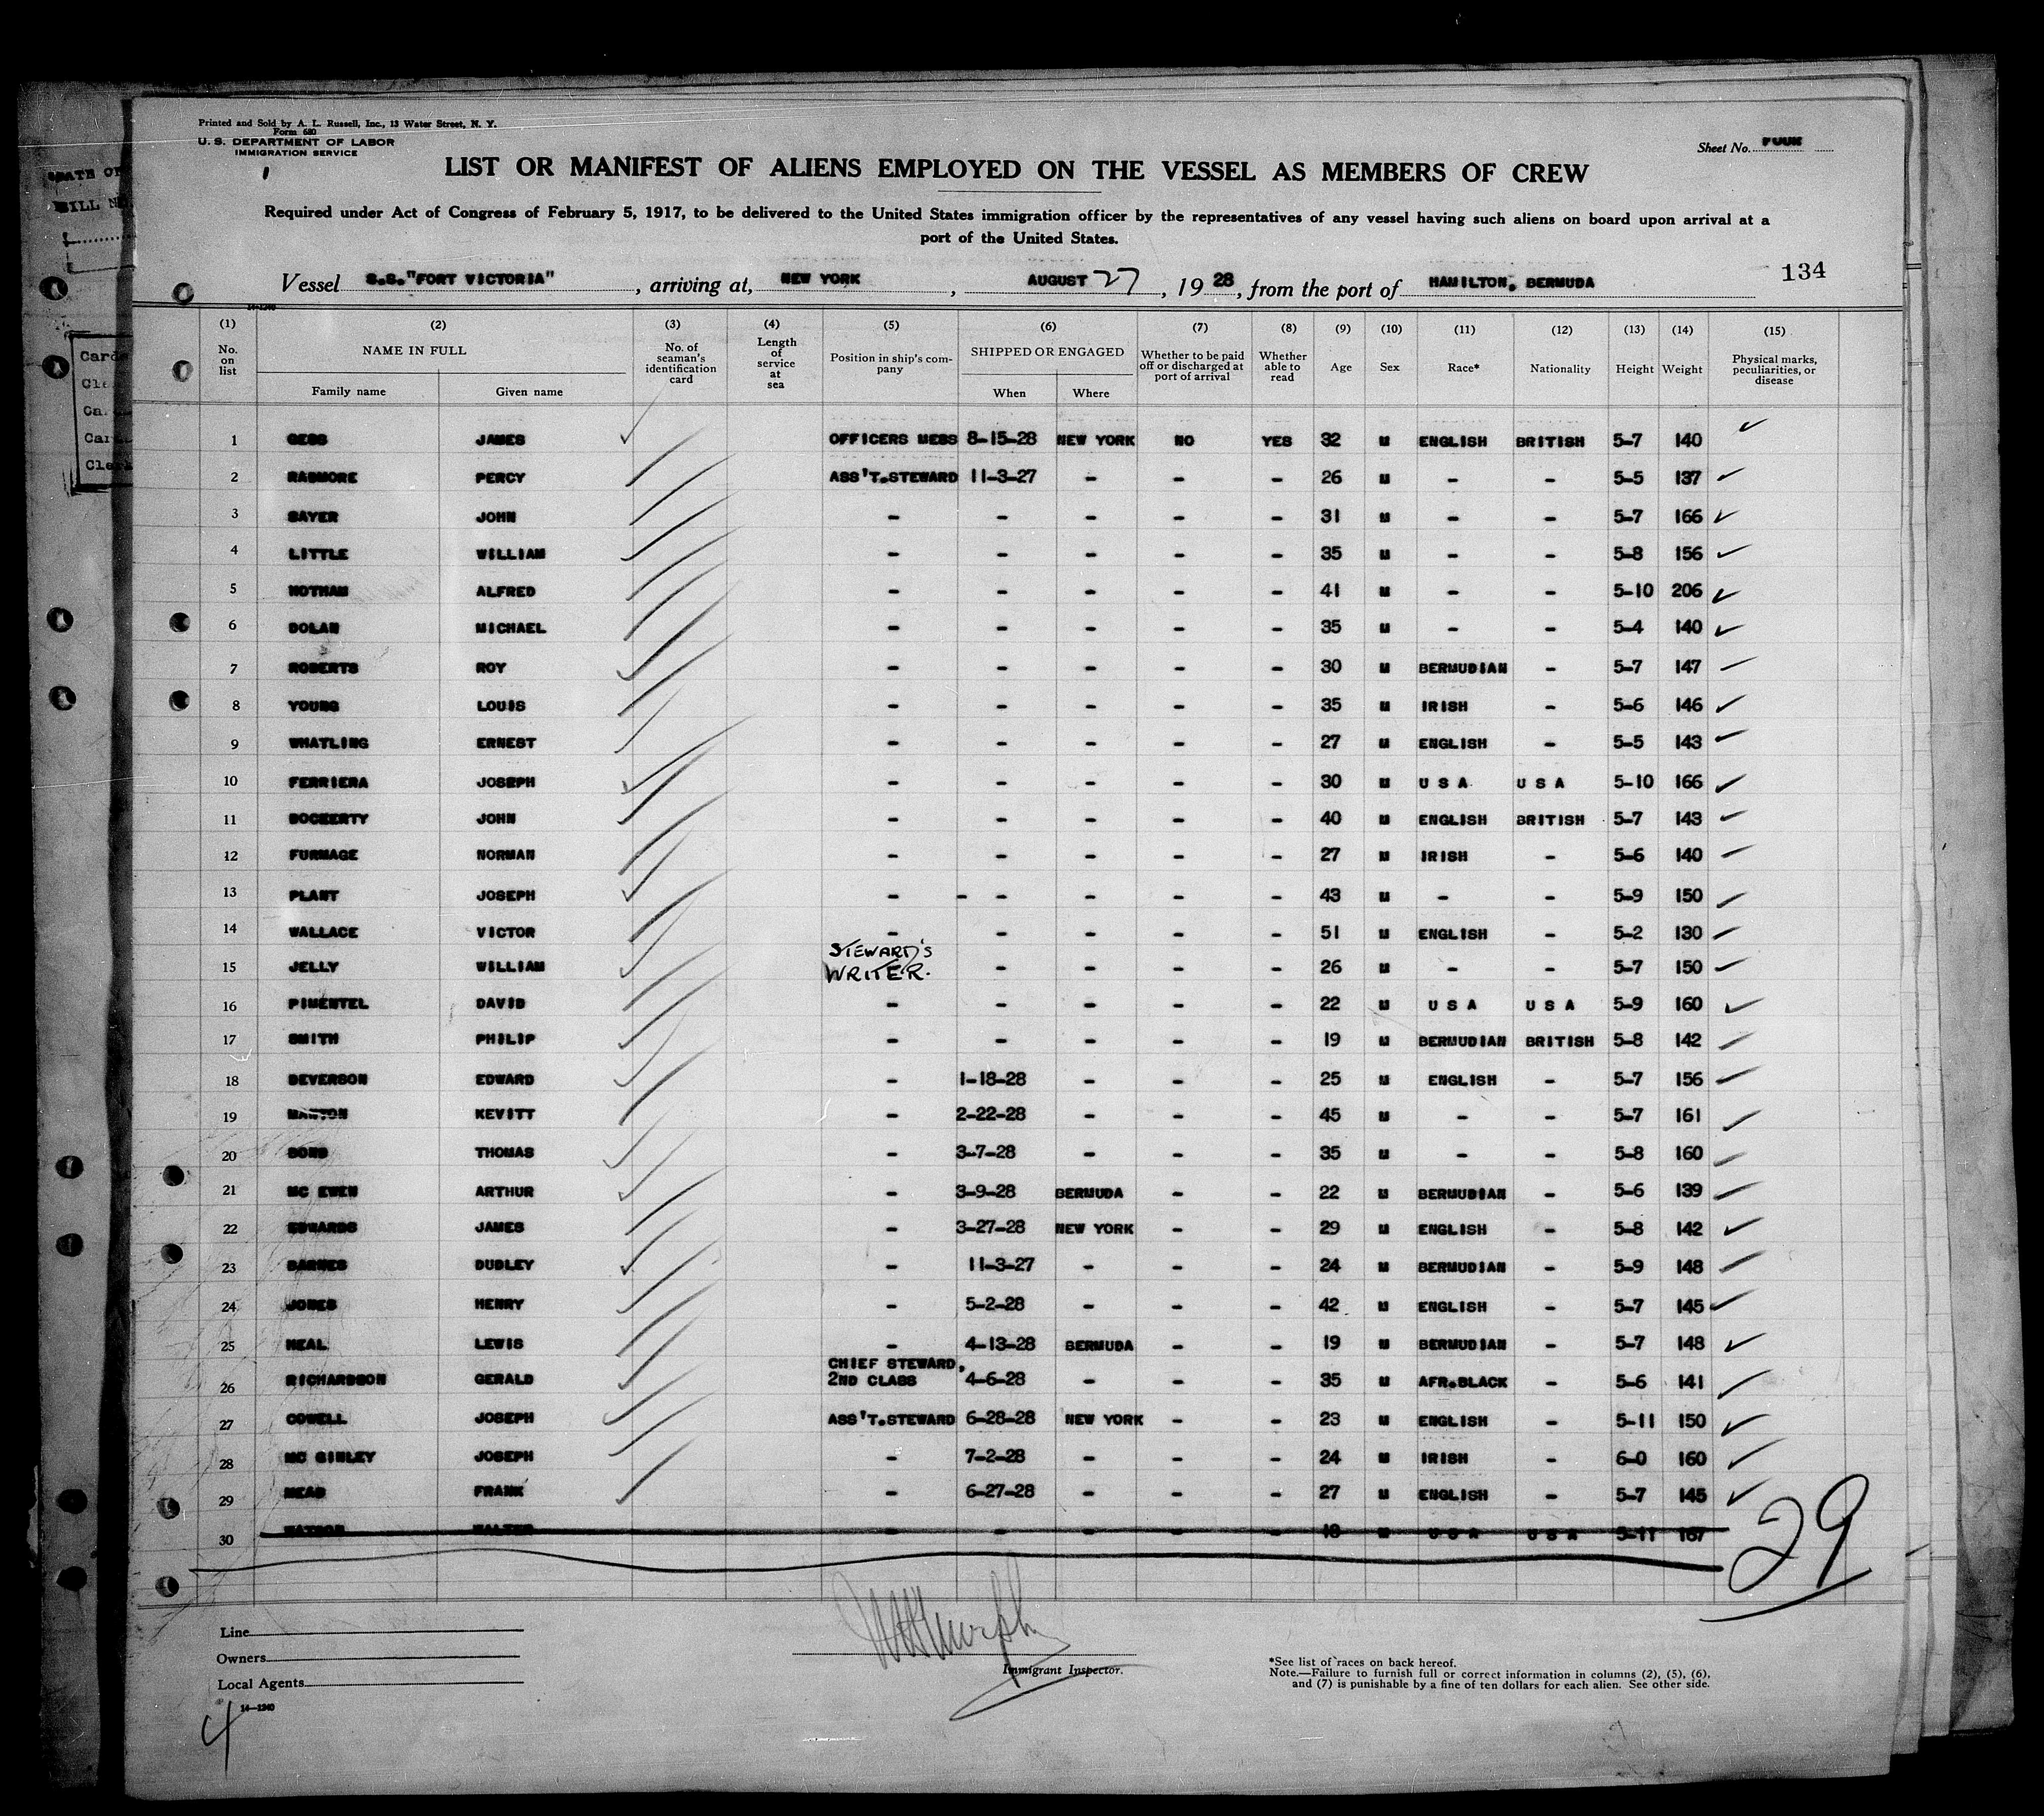 Printed and Sold by A. L. Russell, Inc., 13 Water Street, N. Y.
Form 680
U. S. DEPARTMENT OF LABOR
IMMIGRATION SERVICE
Sheet No. FOUR
LIST OR MANIFEST OF ALIENS EMPLOYED ON THE VESSEL AS MEMBERS OF CREW
Required under Act of Congress of February 5, 1917, to be delivered to the United States immigration officer by the representatives of any vessel having such aliens on board upon arrival at a
port of the United States.
Vessel S.S. "FORT VICTORIA" , arriving at, NEW YORK , AUGUST 27 , 19 28 , from the port of HAMILTON, BERMUDA 134
14-1240
(1) (2) (3) (4) (5) (6) (7) (8) (9) (10) (11) (12) (13) (14) (15)
No. on list NAME IN FULL Family name Given name No. of seaman's identification card Length of service at sea Position in ship's company SHIPPED OR ENGAGED When Where Whether to be paid off or discharged at port of arrival Whether able to read Age Sex Race* Nationality Height Weight Physical marks, peculiarities, or disease
1 GESS JAMES OFFICERS MESS 8-15-28 NEW YORK NO YES 32 M ENGLISH BRITISH 5-7 140
2 RADMORE PERCY ASS'T.STEWARD 11-3-27 - - - 26 M - - 5-5 137
3 SAYER JOHN - - - - - 31 M - - 5-7 166
4 LITTLE WILLIAM - - - - - 35 M - - 5-8 156
5 HOTHAM ALFRED - - - - - 41 M - - 5-10 206
6 DOLAN MICHAEL - - - - - 35 M - - 5-4 140
7 ROBERTS ROY - - - - - 30 M BERMUDIAN - 5-7 147
8 YOUNG LOUIS - - - - - 35 M IRISH - 5-6 146
9 WHATLING ERNEST - - - - - 27 M ENGLISH - 5-5 143
10 FERRIERA JOSEPH - - - - - 30 M U S A U S A 5-10 166
11 DOCKERTY JOHN - - - - - 40 M ENGLISH BRITISH 5-7 143
12 FURMAGE NORMAN - - - - - 27 M IRISH - 5-6 140
13 PLANT JOSEPH - - - - - - 43 M - - 5-9 150
14 WALLACE VICTOR - - - - - 51 M ENGLISH - 5-2 130
15 JELLY WILLIAM STEWARD'S WRITER. - - - - 26 M - - 5-7 150
16 PIMENTEL DAVID - - - - - 22 M U S A U S A 5-9 160
17 SMITH PHILIP - - - - - 19 M BERMUDIAN BRITISH 5-8 142
18 BEVERSON EDWARD - 1-18-28 - - - 25 M ENGLISH - 5-7 156
19 KEVITT - 2-22-28 - - - 45 M - - 5-7 161
20 THOMAS - 3-7-28 - - - 35 M - - 5-8 160
21 MC EWEN ARTHUR - 3-9-28 BERMUDA - - 22 M BERMUDIAN - 5-6 139
22 EDWARDS JAMES - 3-27-28 NEW YORK - - 29 M ENGLISH - 5-8 142
23 BARNES DUDLEY - 11-3-27 - - - 24 M BERMUDIAN - 5-9 148
24 JONES HENRY - 5-2-28 - - - 42 M ENGLISH - 5-7 145
25 NEAL LEWIS - 4-13-28 BERMUDA - - 19 M BERMUDIAN - 5-7 148
26 RICHARDSON GERALD CHIEF STEWARD, 2ND CLASS 4-6-28 - - - 35 M AFR.BLACK - 5-6 141
27 COWELL JOSEPH ASS'T.STEWARD 6-28-28 NEW YORK - - 23 M ENGLISH - 5-11 150
28 MC GINLEY JOSEPH - 7-2-28 - - - 24 M IRISH - 6-0 160
29 MEAD FRANK - 6-27-28 - - - 27 M ENGLISH - 5-7 145
30 WATSON WALTER - - - - - 18 M U S A U S A 5-11 167
29
Line
Owners
Local Agents
14-1240
4
Immigrant Inspector.
*See list of races on back hereof.
Note.—Failure to furnish full or correct information in columns (2), (5), (6),
and (7) is punishable by a fine of ten dollars for each alien. See other side.